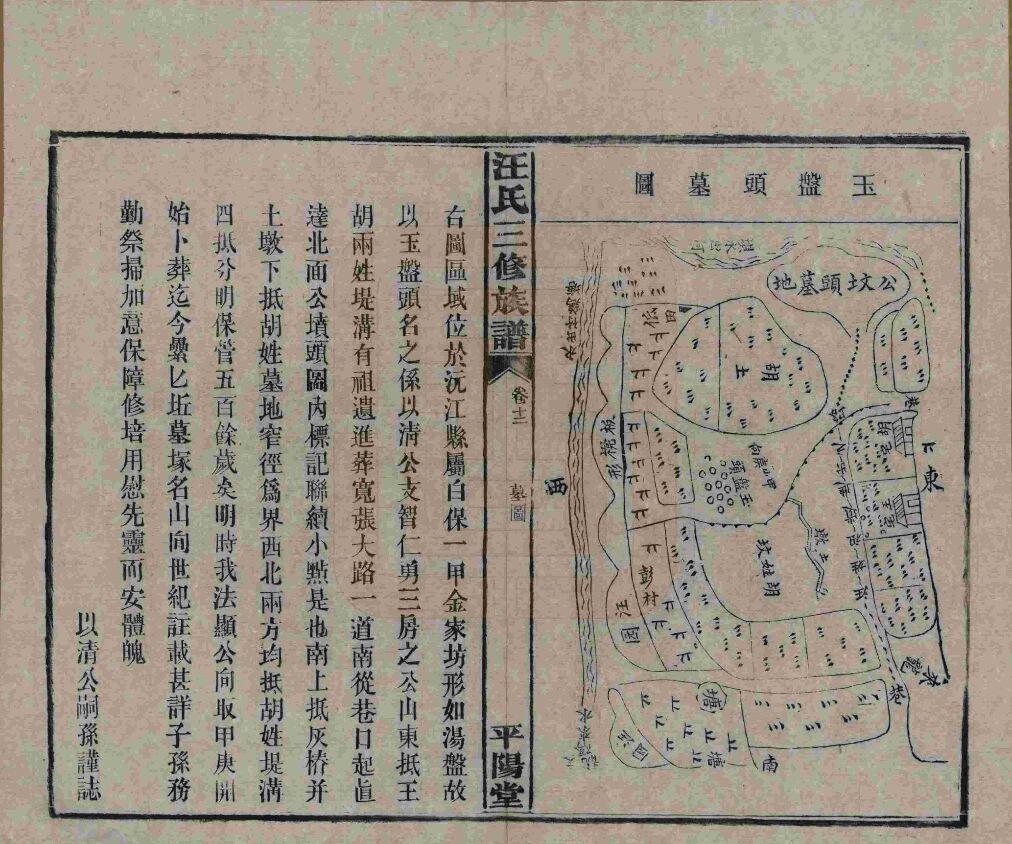 玉盤頭墓圖
公坟頭墓地
胡土
田
低
板橙形
玉盤頭
甲山庚向
胡姓坟
土墩
胡宅
王宅
東
西
南
巷
巷
來龍
彭村
汪園
塘
塘
汪園
汪氏三修族譜
卷十二
墓圖
平陽堂
右圖區域位於沅江縣屬白保一甲金家坊形如湯盤故
以玉盤頭名之係以清公支智仁勇三房之公山東抵王
胡兩姓堤溝有祖遺進葬寬張大路一道南從巷口起直
達北面公墳頭圖內標記聯續小點是也南上抵灰樁并
土墩下抵胡姓墓地窄徑爲界西北兩方均抵胡姓堤溝
四抵分明保管五百餘歲矣明時我法顯公向取甲庚開
始卜葬迄今纍匕坵墓塚名山向世紀註載甚詳子孫務
勤祭掃加意保障修培用慰先靈而安體魄
以清公嗣孫謹誌